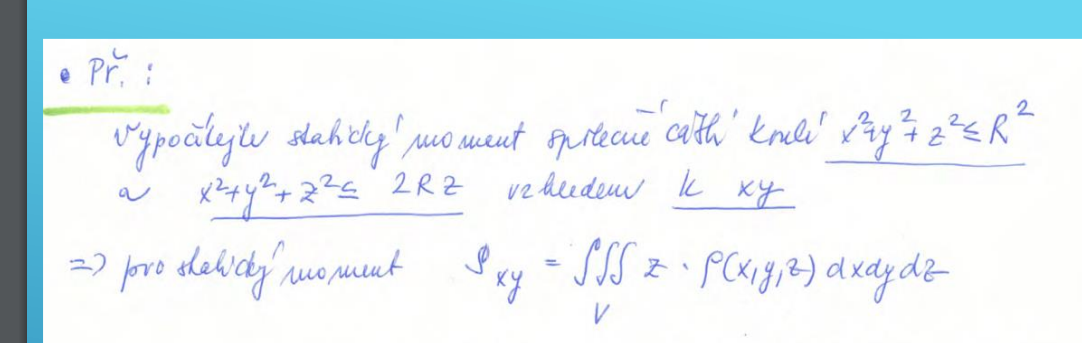 • Př. :
Vypočítejte statický moment společné části koulí x²+y²+z²≤R²
a x²+y²+z²≤ 2Rz vzhledem k xy
=> pro statický moment S_xy = ∭_V z · ρ(x,y,z) dxdydz